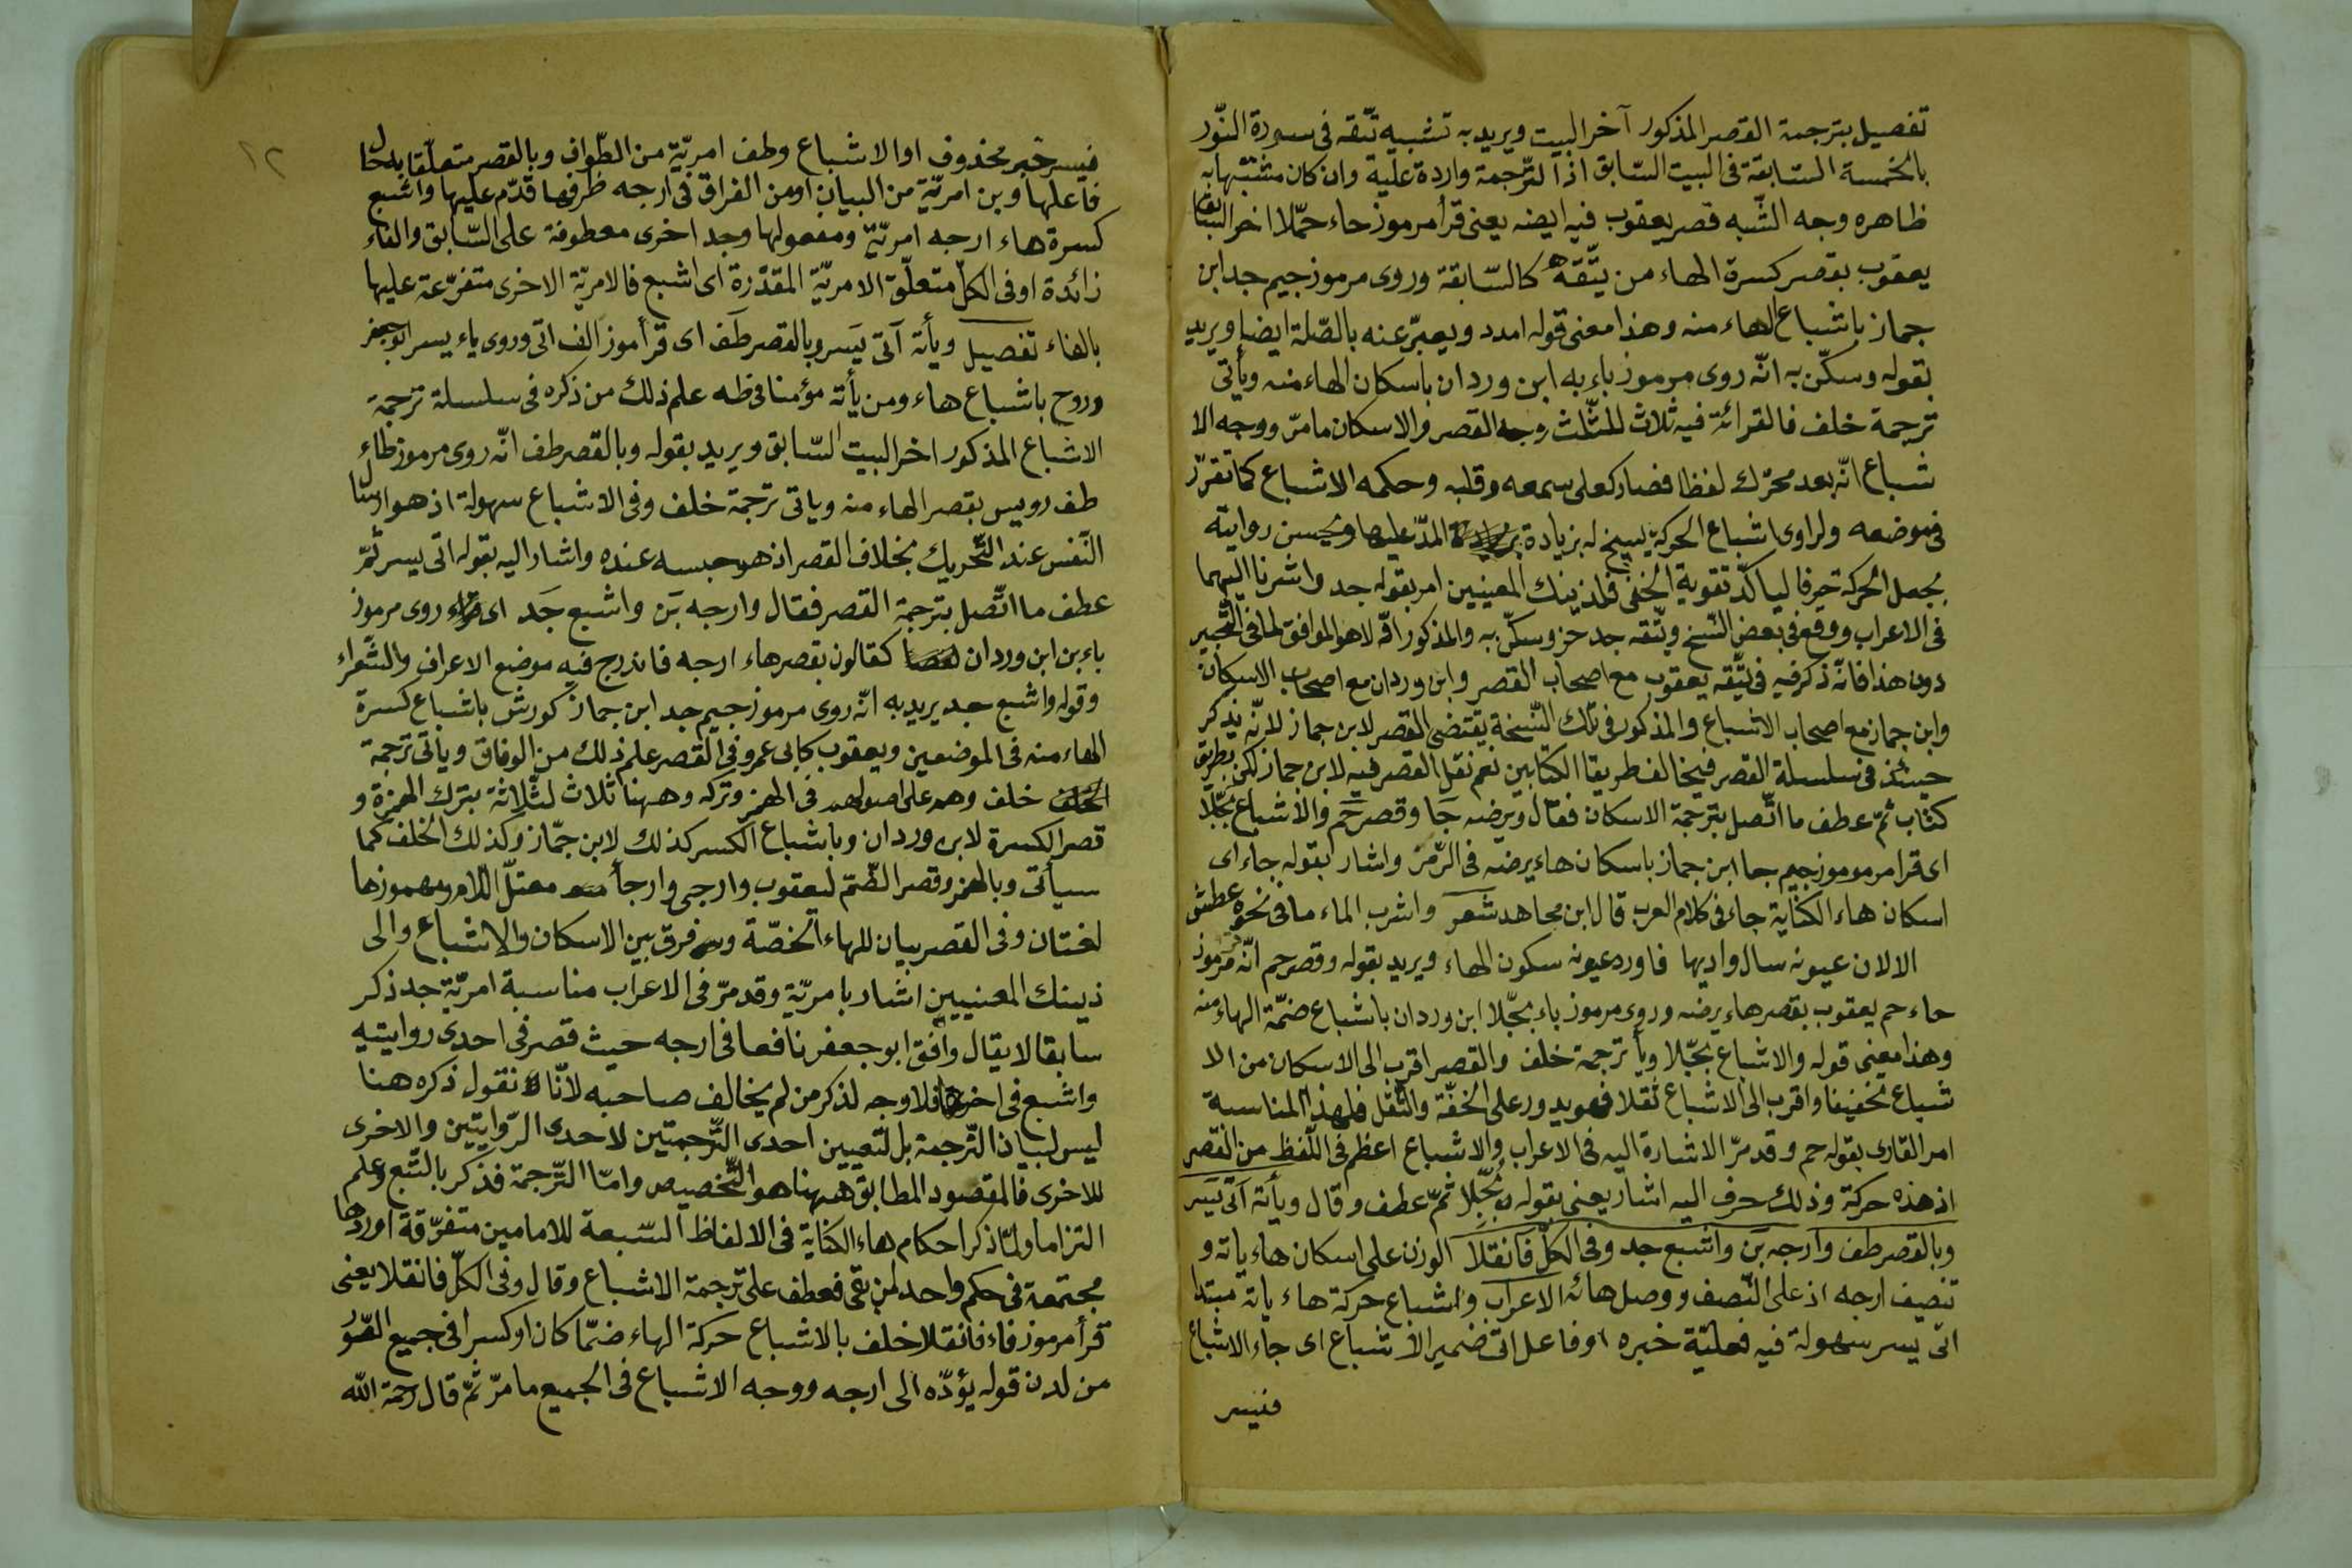 تفصيل بترجمة القصر المذكور آخر البيت ويريد به تشبيه تتّقه فى سورة النّور
بالخمسة السّابقة فى البيت السّابق اذ الترّجمة واردة عليه وان كان مشبّها به
ظاهره وجه الشّبه قصر يعقوب فيه ايضه يعنى قرأ مرموز حاء حمّلا اخر السّابق
يعقوب بقصر كسرة الهاء من يتّقه كالسّابقة وروى مرموز جيم جد ابن
جماز باشباع الهاء منه وهذا معنى قوله امدد ويعبّر عنه بالصّلة ايضا ويريد
بقوله وسكّن به انّه روى مرموز باء به ابن وردان باسكان الهاء منه ويأتى
ترجمة خلف فالقرائة فيه ثلاث للثّلث وجه القصر والاسكان ما مرّ ووجه الا
شباع انّه بعد محرّك لفظا فصار كعلى سمعه وقلبه وحكمه الاشباع كما تقرّر
فى موضعه ولراوى اشباع الحركة يسيخ له بزيادة المدّ عليها ويحسن روايته
بجعل الحركة حرفا لياكّد تقوية الخفى فلذينك المعنيين امر بقوله جد واشرنا اليهما
فى الاعراب ووقع فى بعض النّسخ ويتّقه جد حز وسكّن به والمذكور اوّلا هو الموافق لما فى التّحبير
دون هذا فانّه ذكر فيه فى يتّقه يعقوب مع اصحاب القصر وابن وردان مع اصحاب الاسكان
وابن جماز مع اصحاب الاشباع والمذكور فى تلك النّسخة يقتضى القصر لابن جماز لانّه يذكر
حينئذ فى سلسلة القصر فيخالف طريقا الكتابين نعم نقل القصر فيه لابن جماز لكن بطريق
كتاب ثمّ عطف ما اتّصل بترجمة الاسكان فقال ويرضه جا وقصر حم والاشباع بجّلا
اى قرا مرموز جيم جا ابن جماز باسكان هاء يرضه فى الزّمر واشار بقوله جاء اى
اسكان هاء الكناية جاء فى كلام العرب قال ابن مجاهد شعر واشرب الماء ما فى نحوه عطش
الا لان عيونه سال واديها فاورد عيونه سكون الهاء ويريد بقوله وقصر حم انّه مرموز
حاء حم يعقوب بقصر هاء يرضه وروى مرموز باء بجّلا ابن وردان باشباع ضمّة الهاء منه
وهذا معنى قوله والاشباع بجّلا ويأ ترجمة خلف والقصر اقرب الى الاسكان من الا
شباع تخفيفا واقرب الى الاشباع ثقلا فهو يدور على الخفّة والثّقل فلهذا المناسبة
امر القارى بقوله حم وقد مرّ الاشارة اليه فى الاعراب والاشباع اعظم فى اللّفظ من القصر
اذ هذه حركة وذلك حرف اليه اشار يعنى بقوله بجّلا ثمّ عطف وقال ويأته آتى يسر
وبالقصر طف وارجه بن واشبع جد وفى الكلّ فانقلا الوزن على اسكان هاء ياته و
تنصيف ارجه اذ على النّصف ووصل هائه الاعراب واشباع حركة هاء ياته مبتدا
اتى يسر سهولة فيه فعليّة خبره اوفاعل اتى ضمير الاشباع اى جاء الاشباع
فيسر
١٢
فيسر خبر محذوف او الاشباع وطف امريّة من الطّواف وبالقصر متعلّقا به حال
فاعلها وبن امريّة من البيان او من الفراق فى ارجه ظرفها قدّم عليها واشبع
كسرة هاء ارجه امريّة ومفعولها وجد اخرى معطوفة على السّابق والفاء
زائدة او فى الكلّ متعلّق الامريّة المقدّرة اى اشبع فالامريّة الاخرى متفرّعة عليها
بالفاء تفصيل ويأته آتى يسر وبالقصر طف اى قرأ موز الف اتى وروى ياء يسر ابو جعفر
وروح باشباع هاء ومن يأته مؤمنا فى طه علم ذلك من ذكره فى سلسلة ترجمة
الاشباع المذكور اخر البيت السّابق ويريد بقوله وبالقصر طف انّه روى مرموز طاء
طف رويس بقصر الهاء منه وياتى ترجمة خلف وفى الاشباع سهولة اذ هو ارسال
النّفس عند التّحريك بخلاف القصر اذ هو حبسه عنده واشار اليه بقوله اتى يسر ثمّ
عطف ما اتّصل بترجمة القصر فقال وارجه بن واشبع جد اى روى مرموز
باء بن ابن وردان كقالون بقصر هاء ارجه فاندرج فيه موضع الاعراف والشّعراء
وقوله واشبع جد يريد به انّه روى مرموز جيم جد ابن جماز كورش باشباع كسرة
الهاء منه فى الموضعين ويعقوب كابى عمرو فى القصر علم ذلك من الوفاق وياتى ترجمة
خلف وهم على اصولهم فى الهمز وتركه وههنا ثلاث لثلاثة بترك الهمزة و
قصر الكسرة لابن وردان وباشباع الكسر كذلك لابن جمّاز وكذلك الخلف كما
سيأتى وبالهمز وقصر الضّمّ ليعقوب وارجى وارجأ معتلّ اللّام ومهموزها
لغتان وفى القصر بيان للهاء الخصّة وفرق بين الاسكان والاشباع والى
ذينك المعنيين اشار بامريّة وقد مرّ فى الاعراب مناسبة امريّة جد ذكر
سابقا لا يقال وافق ابو جعفر نافعا فى ارجه حيث قصر فى احدى روايتيه
واشبع فى اخرى فلا وجه لذكر من لم يخالف صاحبه لانّا نقول ذكره هنا
ليس لبيان التّرجمة بل لتعيين احدى التّرجمتين لاحدى الرّوايتين والاخرى
للاخرى فالمقصود المطابق ههنا هو التّخصيص وامّا التّرجمة فذكر بالتّبع وعلم
التزاما ولمّا ذكر احكام هاء الكناية فى الالفاظ السّبعة للامامين متفرّقة اوردها
مجتمعة فى حكم واحد لمن بقى فعطف على ترجمة الاشباع وقال وفى الكلّ فانقلا يعنى
قرأ مرموز فاء فانقلا خلف بالاشباع حركة الهاء ضمّا كان او كسرا فى جميع الصّور
من لدن قوله يؤدّه الى ارجه ووجه الاشباع فى الجميع ما مرّ ثمّ قال رحمة الله